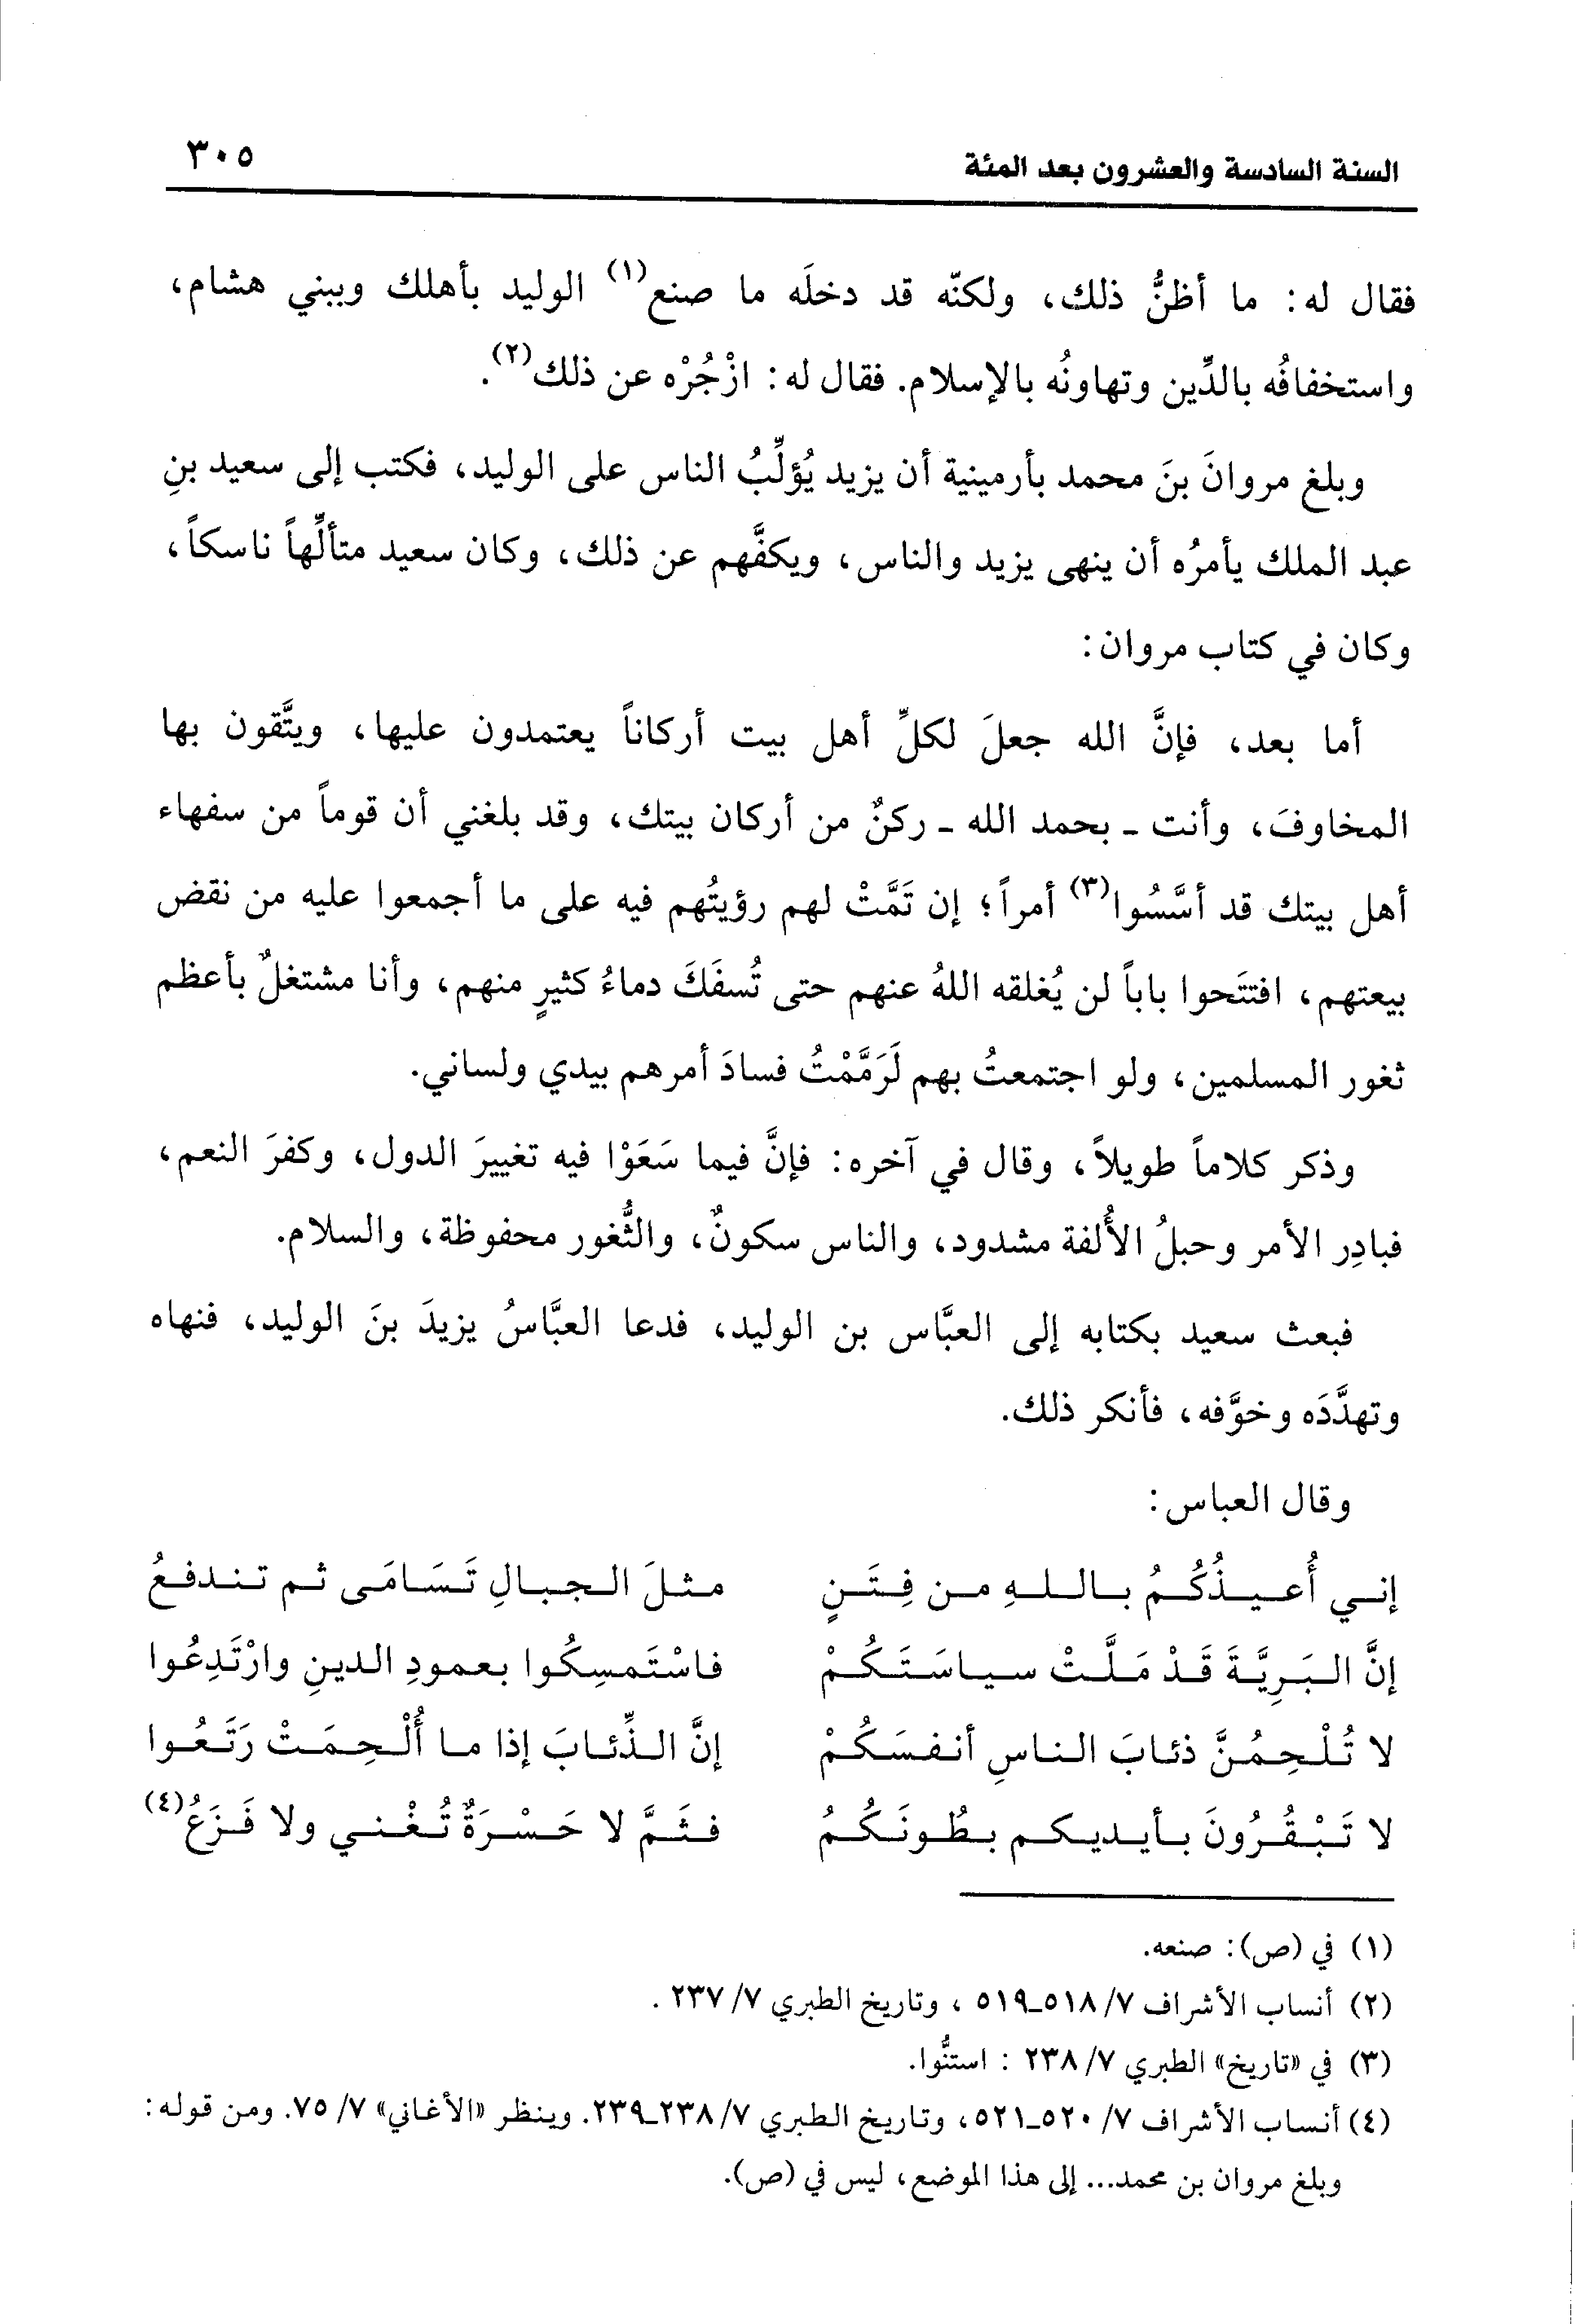 السنة السادسة والعشرون بعد المئة ٣٠٥
فقال له: ما أظنُّ ذلك، ولكنّه قد دخلَه ما صنع(١) الوليد بأهلك وببني هشام،
واستخفافُه بالدِّين وتهاونُه بالإسلام. فقال له: ازْجُرْه عن ذلك(٢).
وبلغ مروانَ بنَ محمد بأرمينية أن يزيد يُؤلِّبُ الناس على الوليد، فكتب إلى سعيد بنِ
عبد الملك يأمرُه أن ينهى يزيد والناس، ويكفَّهم عن ذلك، وكان سعيد متألِّهاً ناسكاً،
وكان في كتاب مروان:
أما بعد، فإنَّ الله جعلَ لكلِّ أهل بيت أركاناً يعتمدون عليها، ويتَّقون بها
المخاوفَ، وأنت ـ بحمد الله ـ ركنٌ من أركان بيتك، وقد بلغني أن قوماً من سفهاء
أهل بيتك قد أسَّسُوا(٣) أمراً؛ إن تَمَّتْ لهم رؤيتُهم فيه على ما أجمعوا عليه من نقض
بيعتهم، افتتَحوا باباً لن يُغلقه اللهُ عنهم حتى تُسفَكَ دماءُ كثيرٍ منهم، وأنا مشتغلٌ بأعظم
ثغور المسلمين، ولو اجتمعتُ بهم لَرَمَّمْتُ فسادَ أمرهم بيدي ولساني.
وذكر كلاماً طويلاً، وقال في آخره: فإنَّ فيما سَعَوْا فيه تغييرَ الدول، وكفرَ النعم،
فبادِر الأمر وحبلُ الأُلفة مشدود، والناس سكونٌ، والثُّغور محفوظة، والسلام.
فبعث سعيد بكتابه إلى العبَّاس بن الوليد، فدعا العبَّاسُ يزيدَ بنَ الوليد، فنهاه
وتهدَّدَه وخوَّفه، فأنكر ذلك.
وقال العباس:
إني أُعيذُكُمُ باللهِ من فِتَنٍ مثلَ الجبالِ تَسَامَى ثم تندفعُ
إنَّ البَرِيَّةَ قَدْ مَلَّتْ سياسَتَكُمْ فاسْتَمسِكُوا بعمودِ الدينِ وارْتَدِعُوا
لا تُلْحِمُنَّ ذئابَ الناسِ أنفسَكُمْ إنَّ الذِّئابَ إذا ما أُلْحِمَتْ رَتَعُوا
لا تَبْقُرُونَ بأيديكم بطُونَكُمُ فثَمَّ لا حَسْرَةٌ تُغْني ولا فَزَعُ(٤)
(١) في (ص): صنعه.
(٢) أنساب الأشراف ٧/ ٥١٨ـ٥١٩ ، وتاريخ الطبري ٧/ ٢٣٧ .
(٣) في «تاريخ» الطبري ٧/ ٢٣٨ : استنُّوا.
(٤) أنساب الأشراف ٧/ ٥٢٠ـ٥٢١، وتاريخ الطبري ٧/ ٢٣٨ـ٢٣٩. وينظر «الأغاني» ٧/ ٧٥. ومن قوله:
وبلغ مروان بن محمد... إلى هذا الموضع، ليس في (ص).